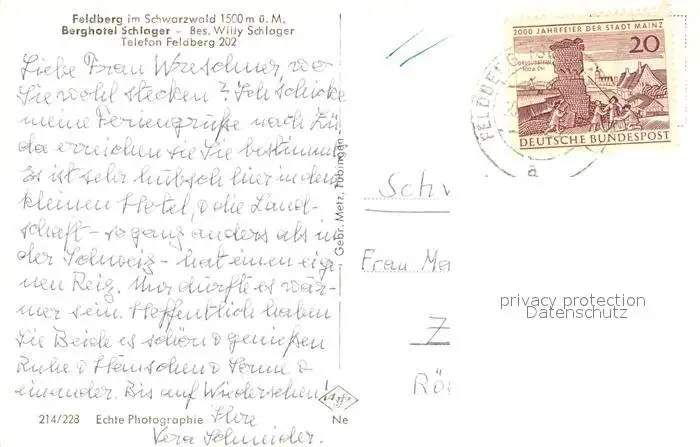 Feldberg im Schwarzwald 1500 m ü. M.
Berghotel Schlager – Bes. Willy Schlager
Telefon Feldberg 202
Liebe Frau Wreschner, wo
Sie wohl stecken? Ich schicke
meine Feriengrüße nach Zü-
da erreichen sie Sie bestimmt
Es ist sehr hübsch hier in dem
kleinen Hotel, & die Land-
schaft – so ganz anders als in
der Schweiz – hat einen eige-
nen Reiz. Nur dürfte es wär-
mer sein. Hoffentlich haben
Sie Beide es schön & genießen
Ruhe & Häuschen & Sonne &
einander. Bis auf Wiedersehen!
Ihre
Vera Schneider.
214/228 Echte Photographie
Ne
Gebr. Metz, Tübingen
2000 JAHRFEIER DER STADT MAINZ
20
DEUTSCHE BUNDESPOST
FELDBERG
a
Schw
Frau Ma
Z
Rö
privacy protection
Datenschutz